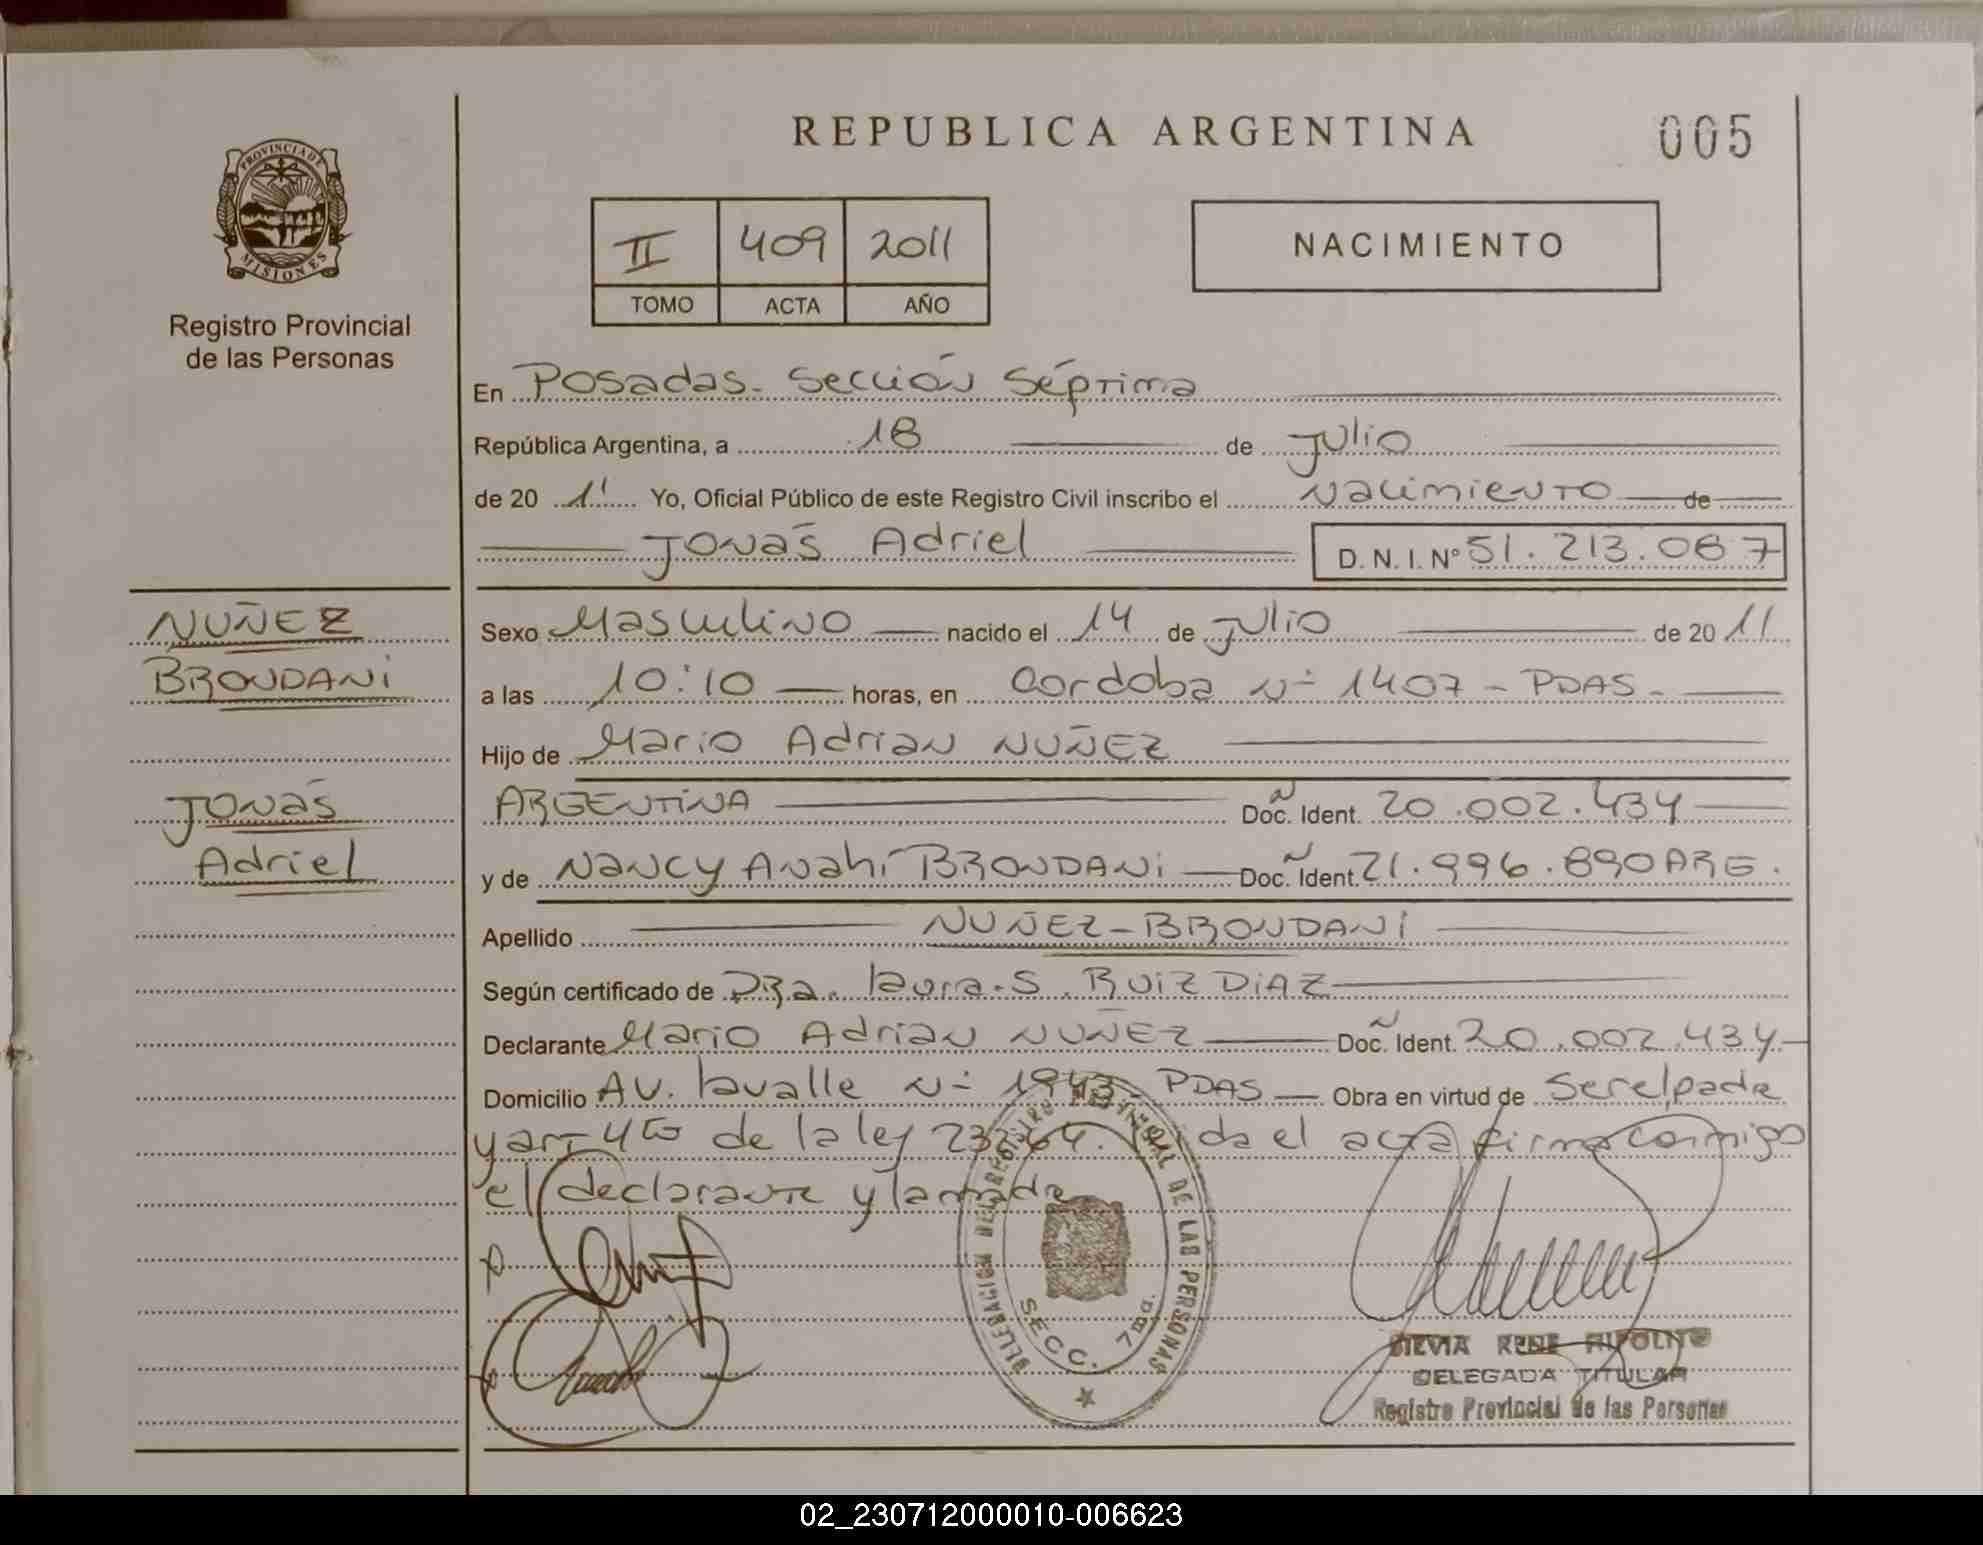 REPUBLICA ARGENTINA
005
PROVINCIA DE MISIONES
Registro Provincial
de las Personas
II 409 2011
TOMO ACTA AÑO
NACIMIENTO
En Posadas. Sección Séptima
República Argentina, a 18 de Julio
de 20 11 Yo, Oficial Público de este Registro Civil inscribo el Nacimiento de
Jonás Adriel D.N.I. Nº 51.213.087
NUÑEZ
BRONDANi
Jonás
Adriel
Sexo Masculino nacido el 14 de Julio de 20 11
a las 10:10 horas, en Cordoba Nº 1407 - PDAS -
Hijo de Mario Adrian NUÑEZ
ARGENTINA Doc. Ident. 20.002.434
y de Nancy Anahí BRONDANi Doc. Ident. 21.996.890 ARG.
Apellido NUÑEZ - BRONDANI
Según certificado de DRa. laura. S. RUIZ DIAZ
Declarante Mario Adrian NUÑEZ Doc. Ident. 20.002.434
Domicilio AV. lavalle Nº 1943 PDAS Obra en virtud de Ser el padre
y art 4to de la ley 23264. el acta firma conmigo
el declarante y la madre
DELEGACION DEL REGISTRO PROVINCIAL DE LAS PERSONAS
SECC. 7ma.
SILVIA RENE HIPOLITO
DELEGADA TITULAR
Registro Provincial de las Personas
02_230712000010-006623